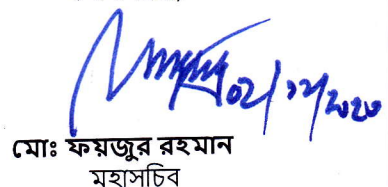 ০২/১২/২০২০
মোঃ ফয়জুর রহমান
মহাসচিব